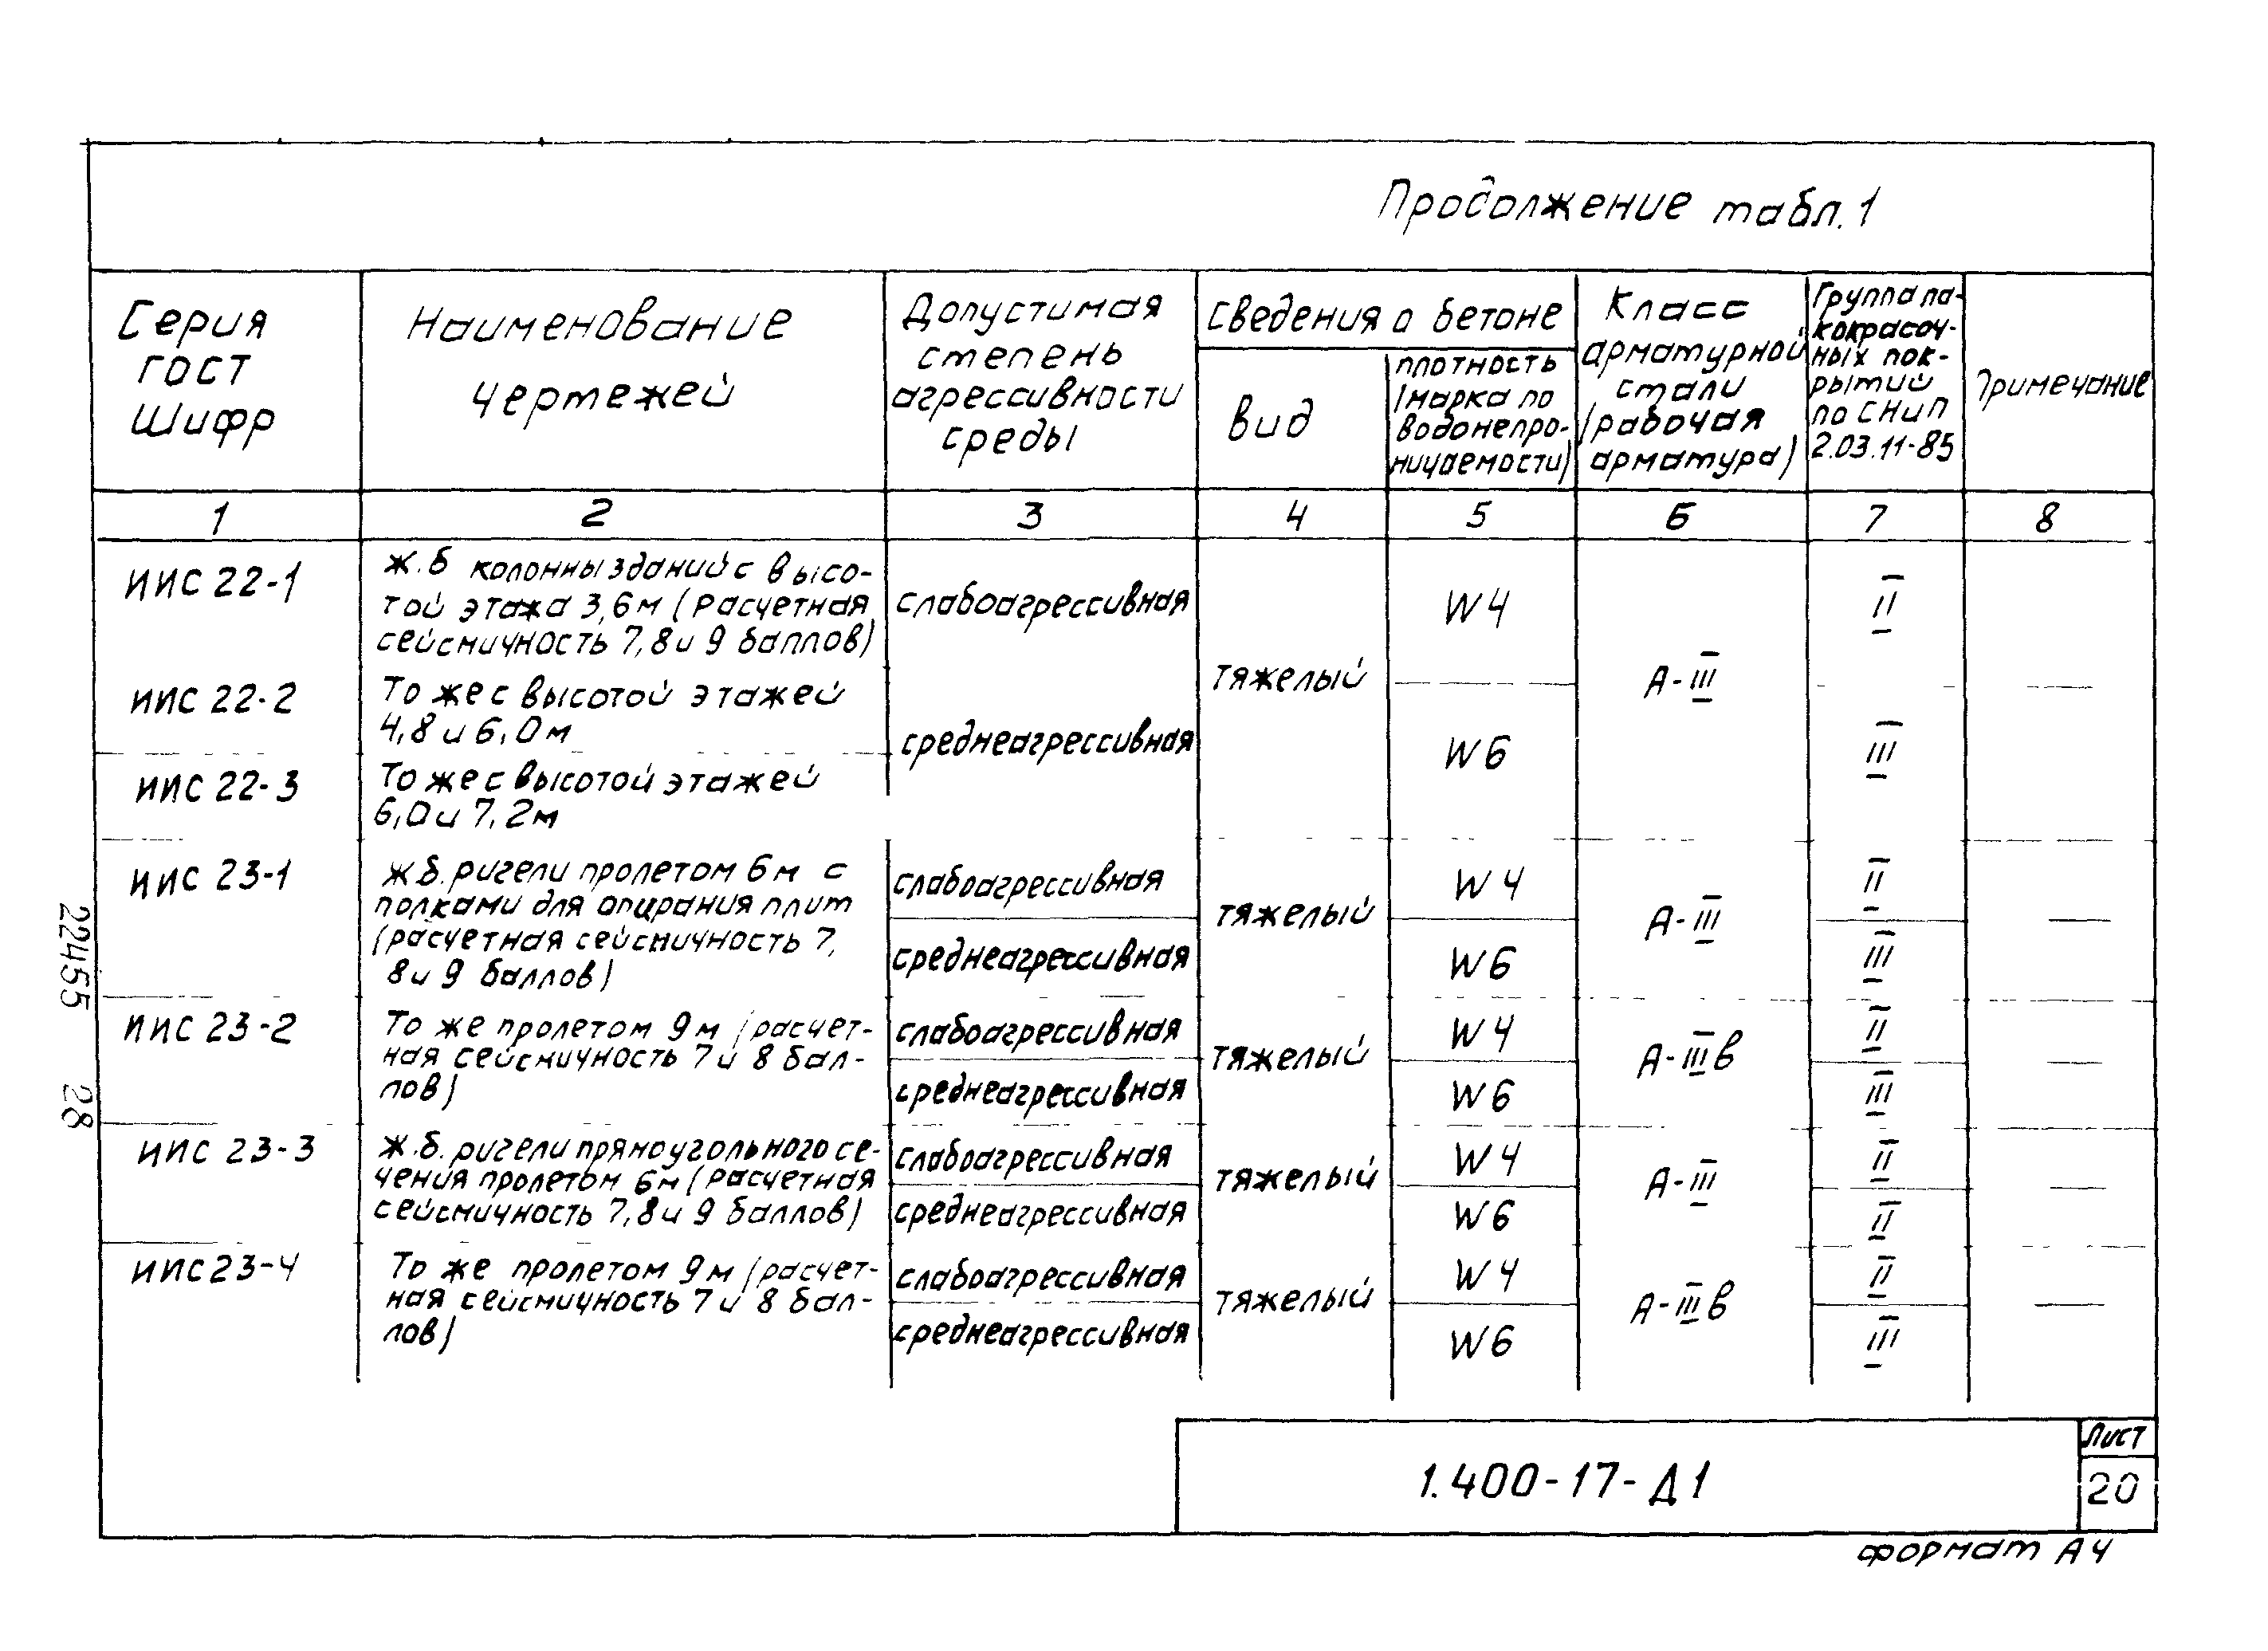 Продолжение табл. 1
Серия
ГОСТ
Шифр
Наименование
чертежей
Допустимая
степень
агрессивности
среды
Сведения о бетоне
Вид
плотность
(марка по
водонепро-
ницаемости)
Класс
арматурной
стали
(рабочая
арматура)
Группа ла-
кокрасоч-
ных пок-
рытий
по СНиП
2.03.11-85
Примечание
1 2 3 4 5 6 7 8
ИИС 22-1
Ж.б колонны зданий с высо-
той этажа 3,6м (расчетная
сейсмичность 7,8 и 9 баллов)
слабоагрессивная
W4
II
ИИС 22-2
То же с высотой этажей
4,8 и 6,0м
тяжелый
—
А-III
—
среднеагрессивная
W6
III
ИИС 22-3
То же с высотой этажей
6,0 и 7,2м
ИИС 23-1
Ж.б. ригели пролетом 6м с
полками для опирания плит
(расчетная сейсмичность 7,
8 и 9 баллов)
слабоагрессивная
среднеагрессивная
тяжелый
W4
W6
А-III
II
III
—
ИИС 23-2
То же пролетом 9м (расчет-
ная сейсмичность 7 и 8 бал-
лов)
слабоагрессивная
среднеагрессивная
тяжелый
W4
W6
А-IIIв
II
III
—
ИИС 23-3
Ж.б. ригели прямоугольного се-
чения пролетом 6м (расчетная
сейсмичность 7,8 и 9 баллов)
слабоагрессивная
среднеагрессивная
тяжелый
W4
W6
А-III
II
II
—
ИИС 23-4
То же пролетом 9м (расчет-
ная сейсмичность 7 и 8 бал-
лов)
слабоагрессивная
среднеагрессивная
тяжелый
W4
W6
А-IIIв
II
III
—
22455 28
1.400-17-Д1
Лист
20
формат А4